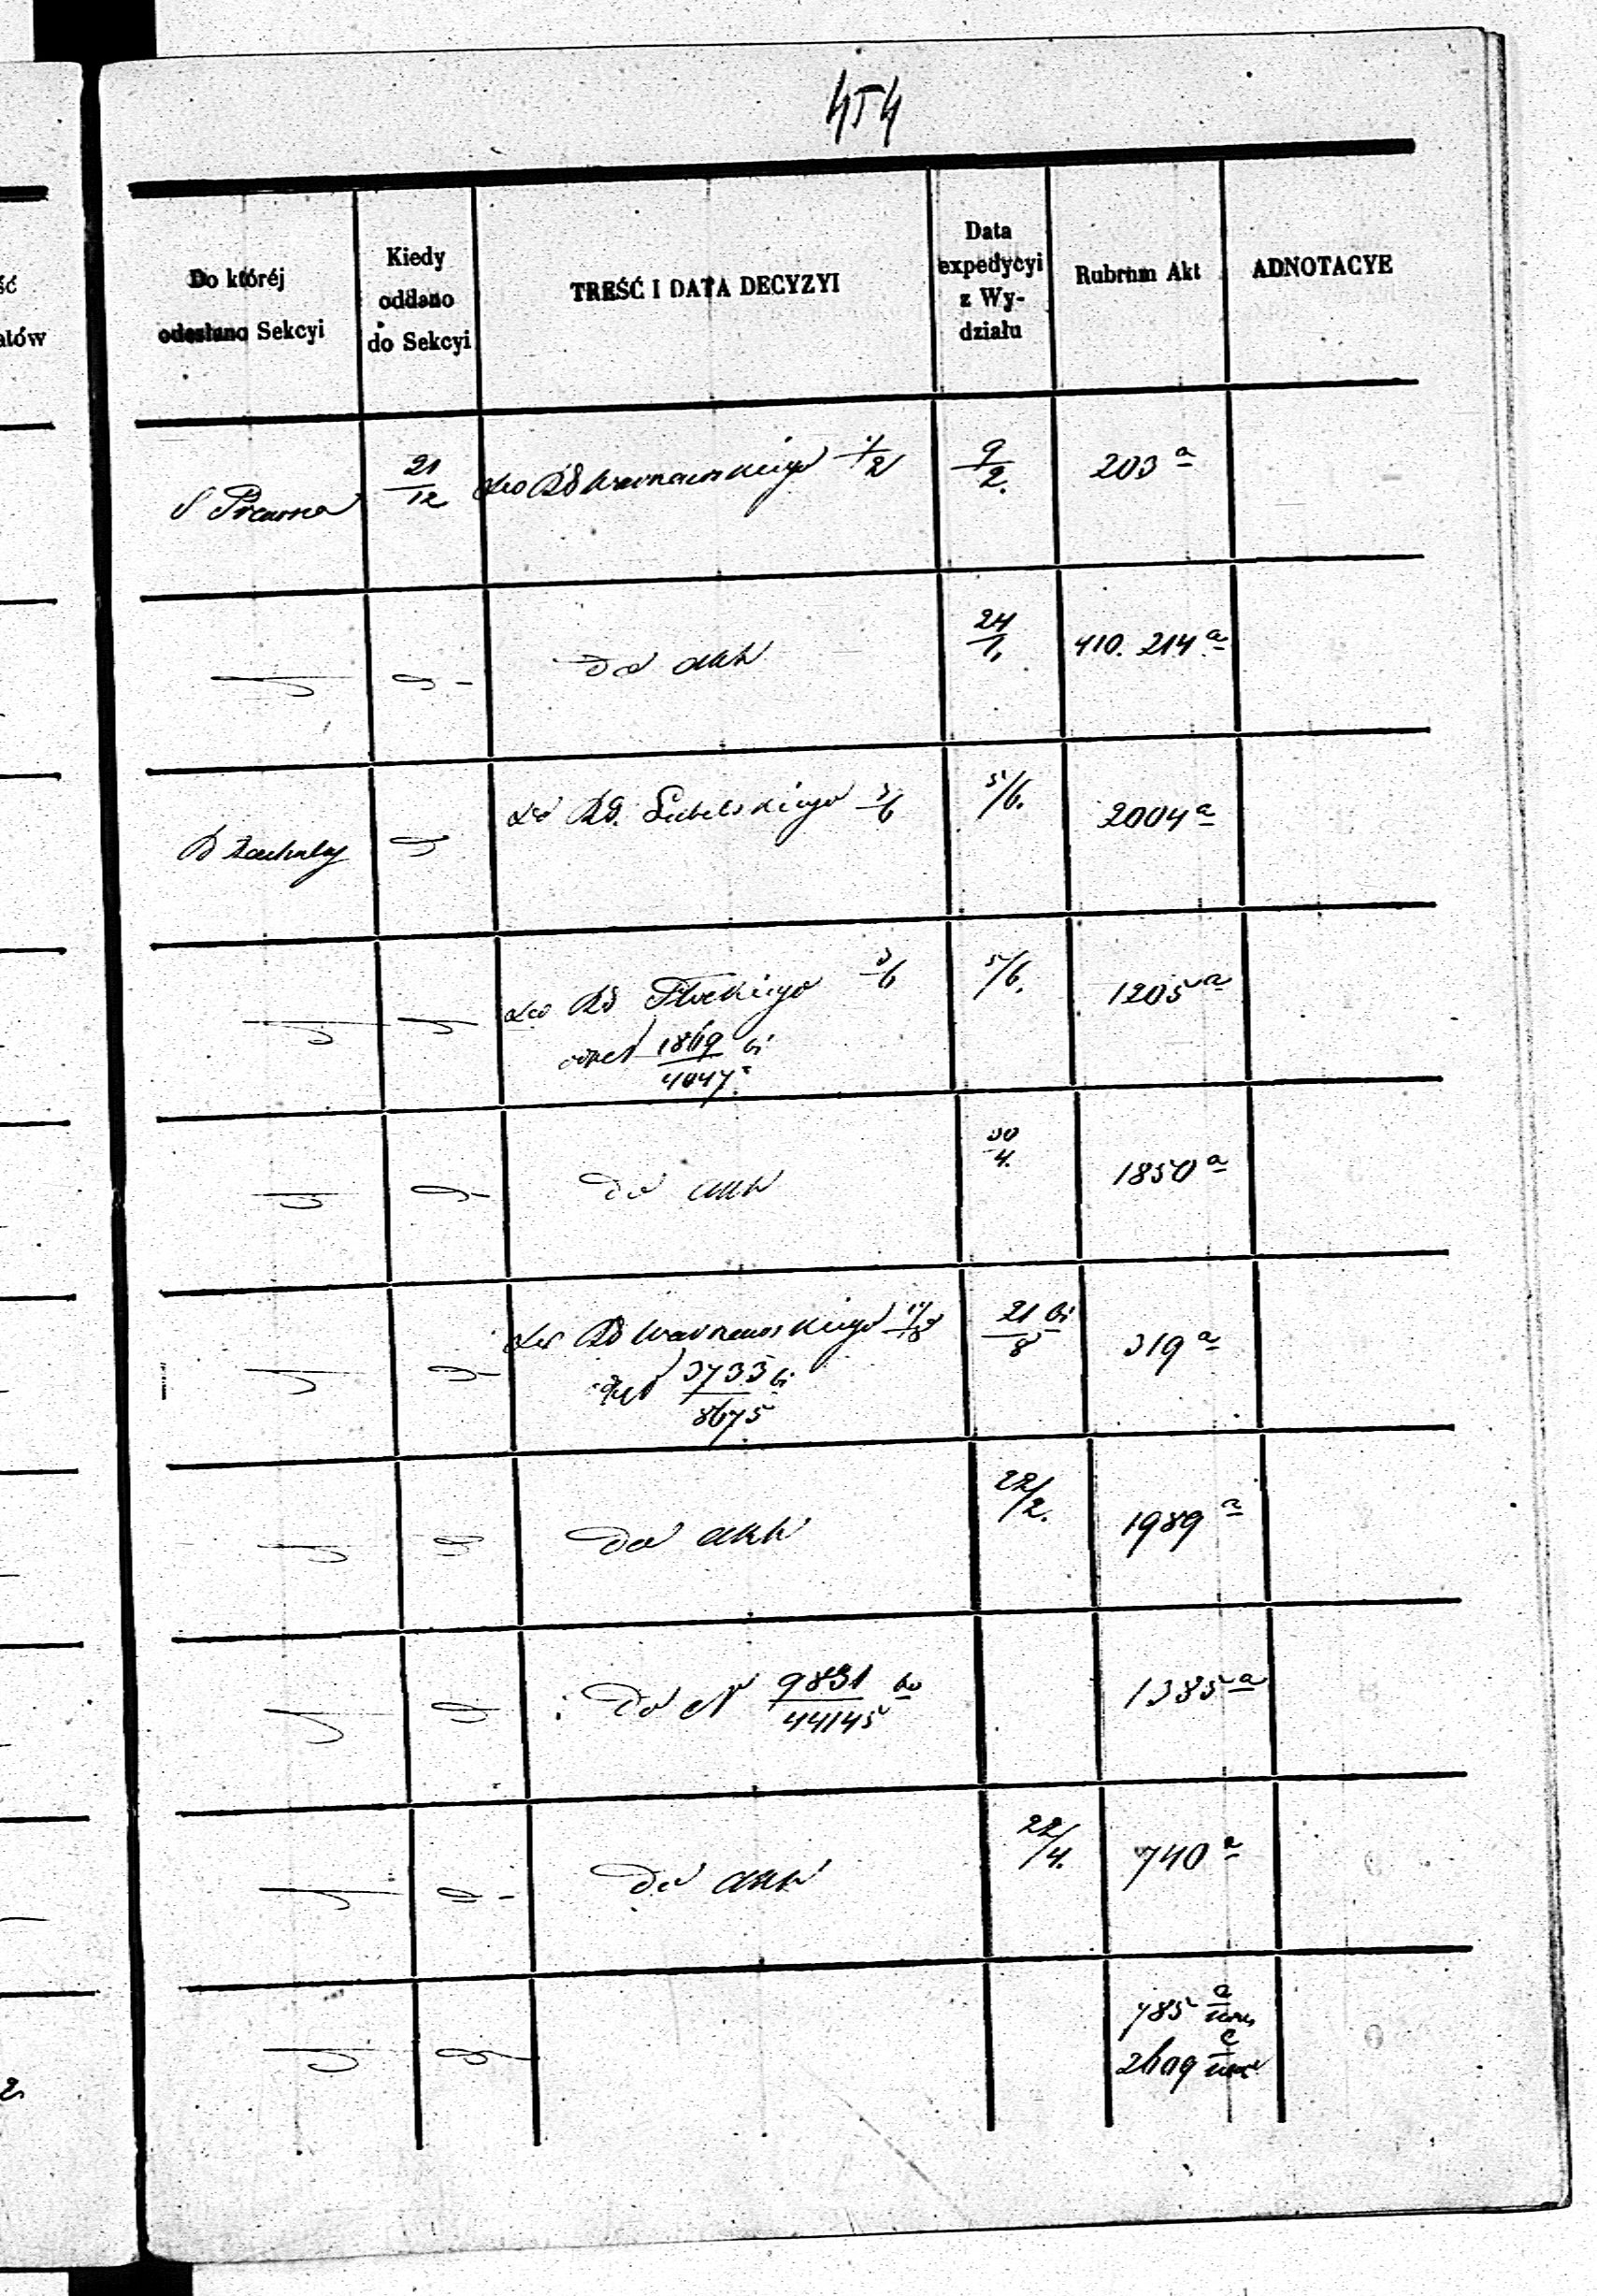 454
ść
ałów
Do któréj
odesłano Sekcyi
Kiedy
oddano
do Sekcyi
TREŚĆ I DATA DECYZYI
Data
expedycyi
z Wy-
działu
Rubrum Akt
ADNOTACYE
S Prawna 21/12 do RG Warszawskiego 1/2 9/2. 203 a
Do akt 24/1. 410. 214 a
do RG. Lubelskiego 3/6 5/6. 2004 a
do RG Płockiego 3/6 5/6. 1205 a
1869/4047.
Do akt 30/4. 1850 a
do RG Warszawskiego 21/8 319 a
3733/8675
Do akt 22/2. 1989 a
Do N 9831/44145 1385 a
Do akt 22/4. 740 a
785 a
2609
2.